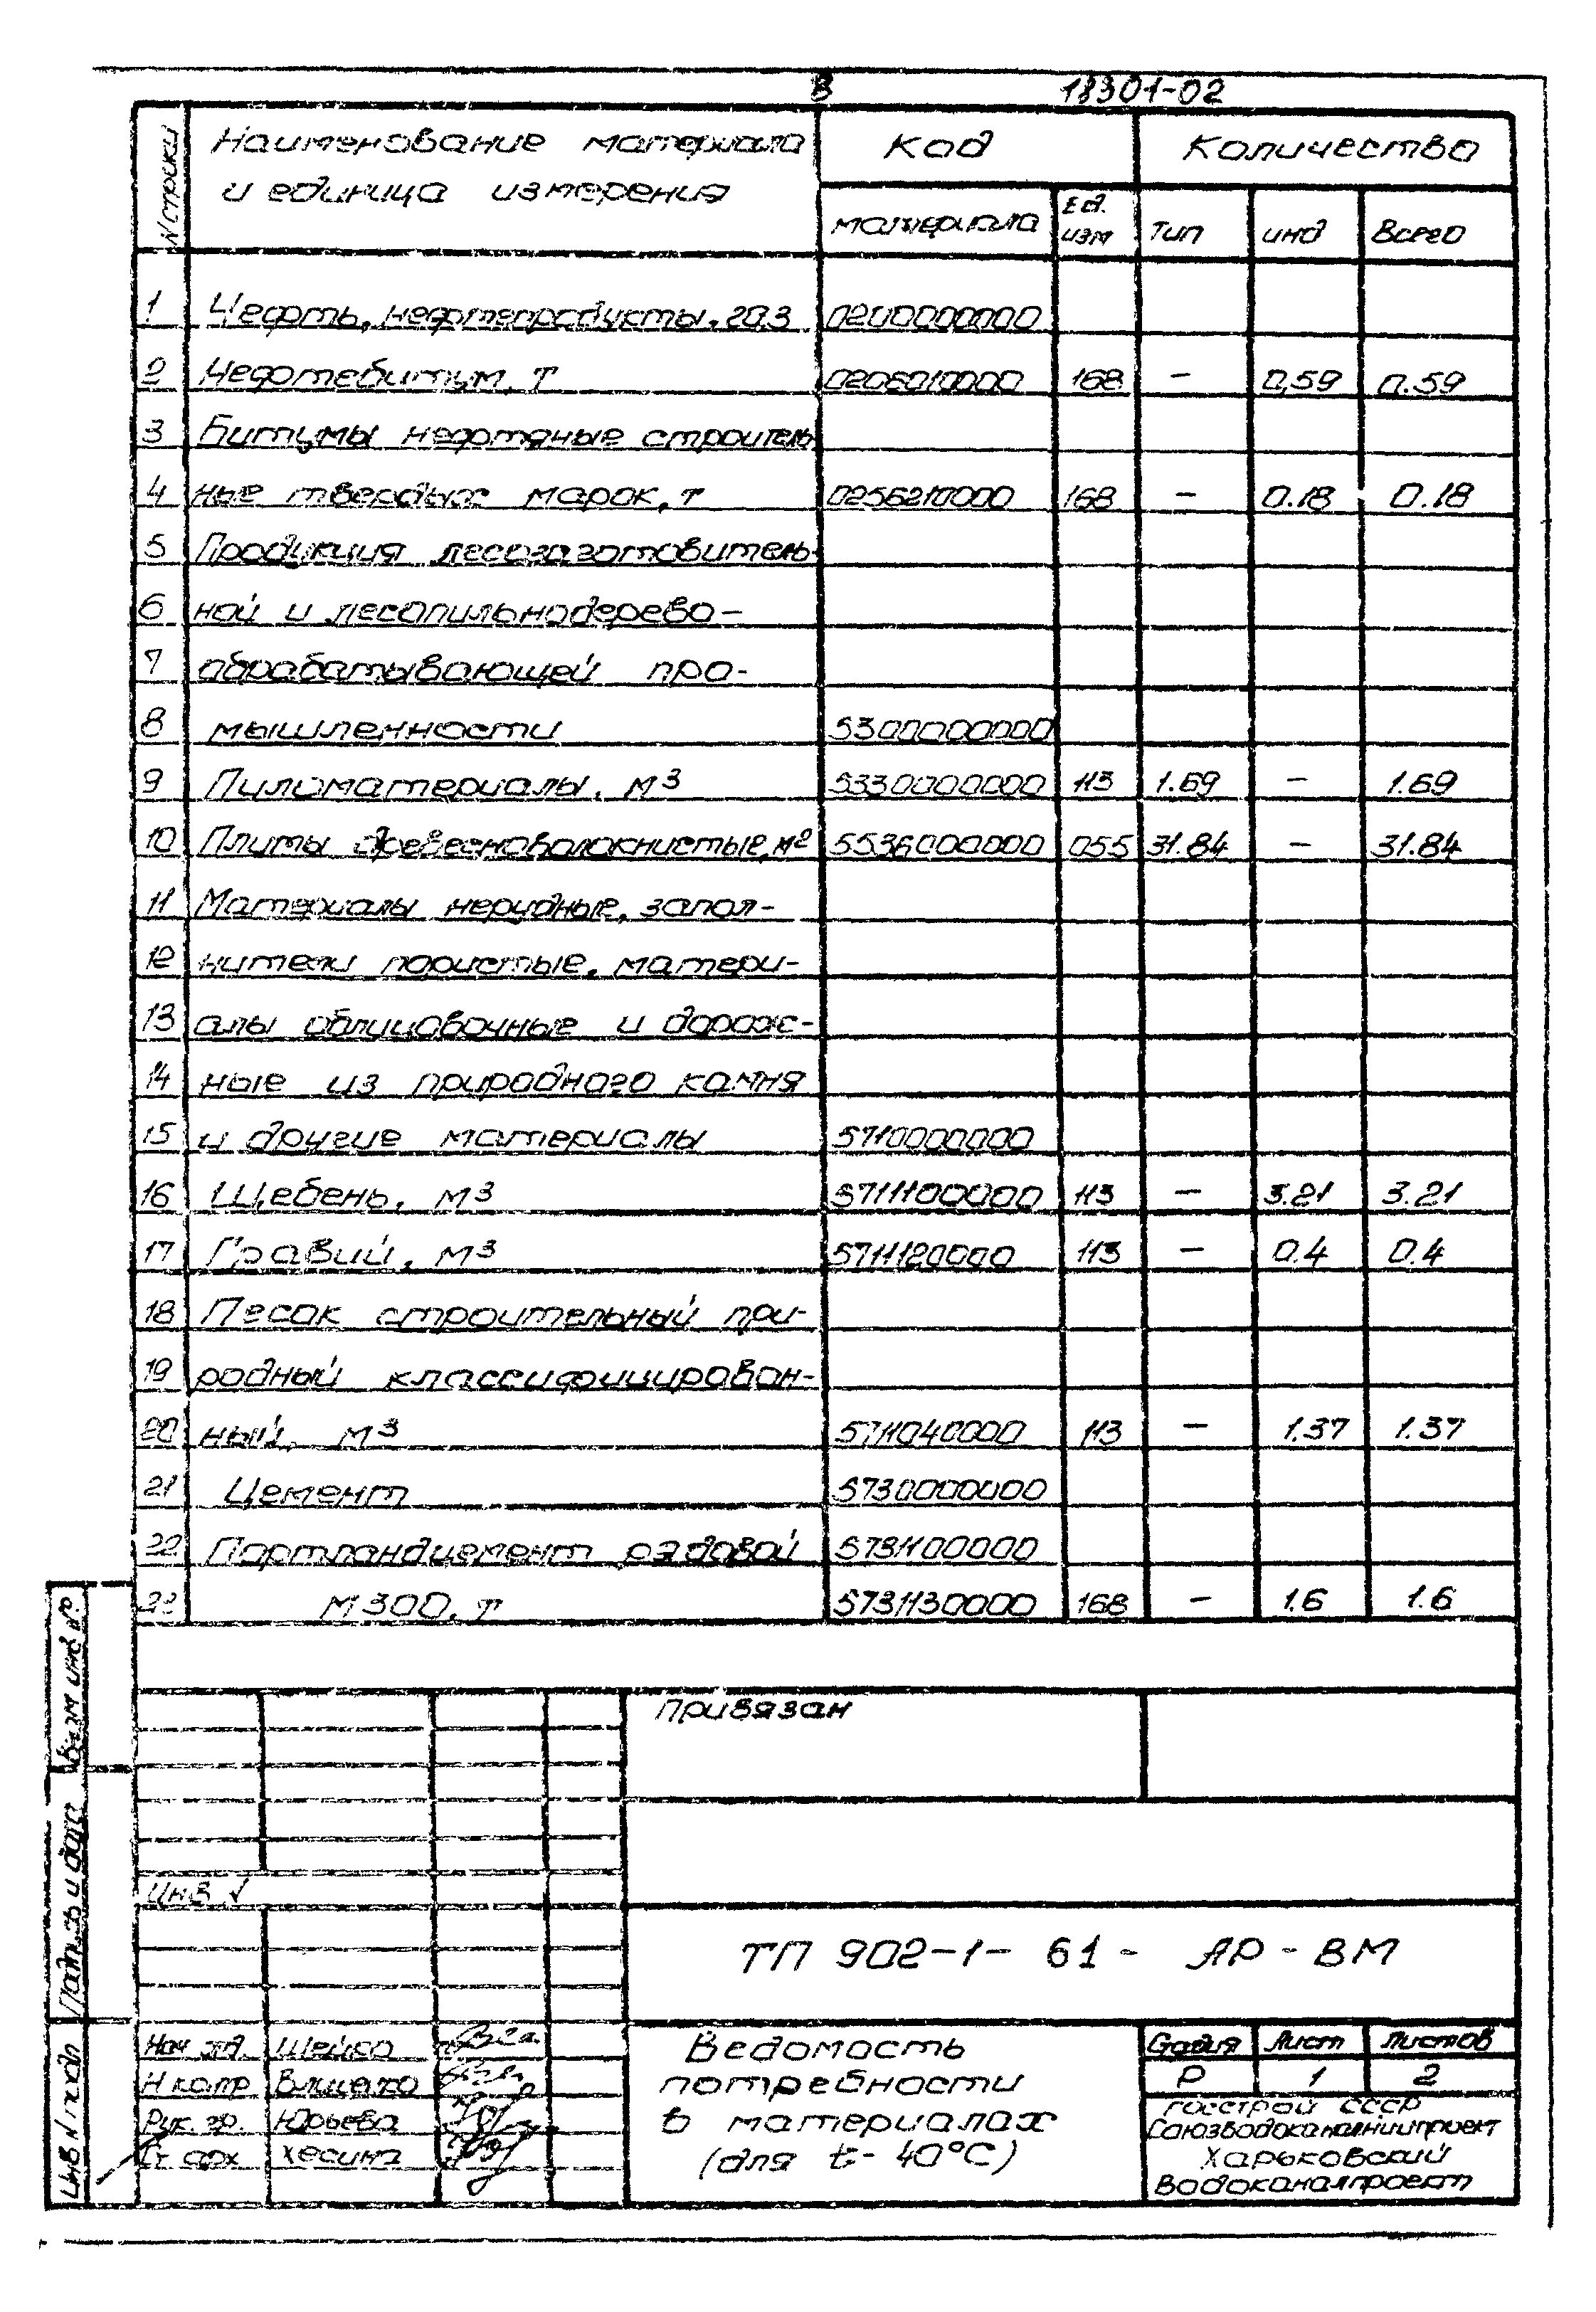 8 18301-02
N строки Наименование материала и единица измерения Код Количество
материала Ед. изм Тип инд Всего
1 Нефть, нефтепродукты, газ 0200000000
2 Нефтебитум, т 0206010000 168 – 0,59 0.59
3 Битумы нефтяные строитель
4 ные твердых марок, т 0256210000 168 – 0.18 0.18
5 Продукция лесозаготовитель-
6 ной и лесопильнодерево-
7 обрабатывающей про-
8 мышленности 5300000000
9 Пиломатериалы, м3 5330000000 113 1.69 – 1.69
10 Плиты древесноволокнистые, м2 5536000000 055 31.84 – 31.84
11 Материалы нерудные, запол-
12 нители пористые, матери-
13 алы облицовочные и дорож-
14 ные из природного камня
15 и другие материалы 5710000000
16 Щебень, м3 5711100000 113 – 3.21 3.21
17 Гравий, м3 5711120000 113 – 0.4 0.4
18 Песок строительный при-
19 родный классифицирован-
20 ный, м3 5711040000 113 – 1.37 1.37
21 Цемент 5730000000
22 Портландцемент рядовой 5731100000
23 М300, т 5731130000 168 – 1.6 1.6
Привязан
Инв √
ТП 902-1-61- АР-ВМ
Нач отд. Шейко
Н контр Влищко
Рук. гр. Юрьева
Ст арх Хесина
Ведомость
потребности
в материалах
(для t-40°С)
Стадия Лист Листов
Р 1 2
Госстрой СССР
Союзводоканалниипроект
Харьковский
Водоканалпроект
Взам инв №
Подпись и дата
Инв N подл